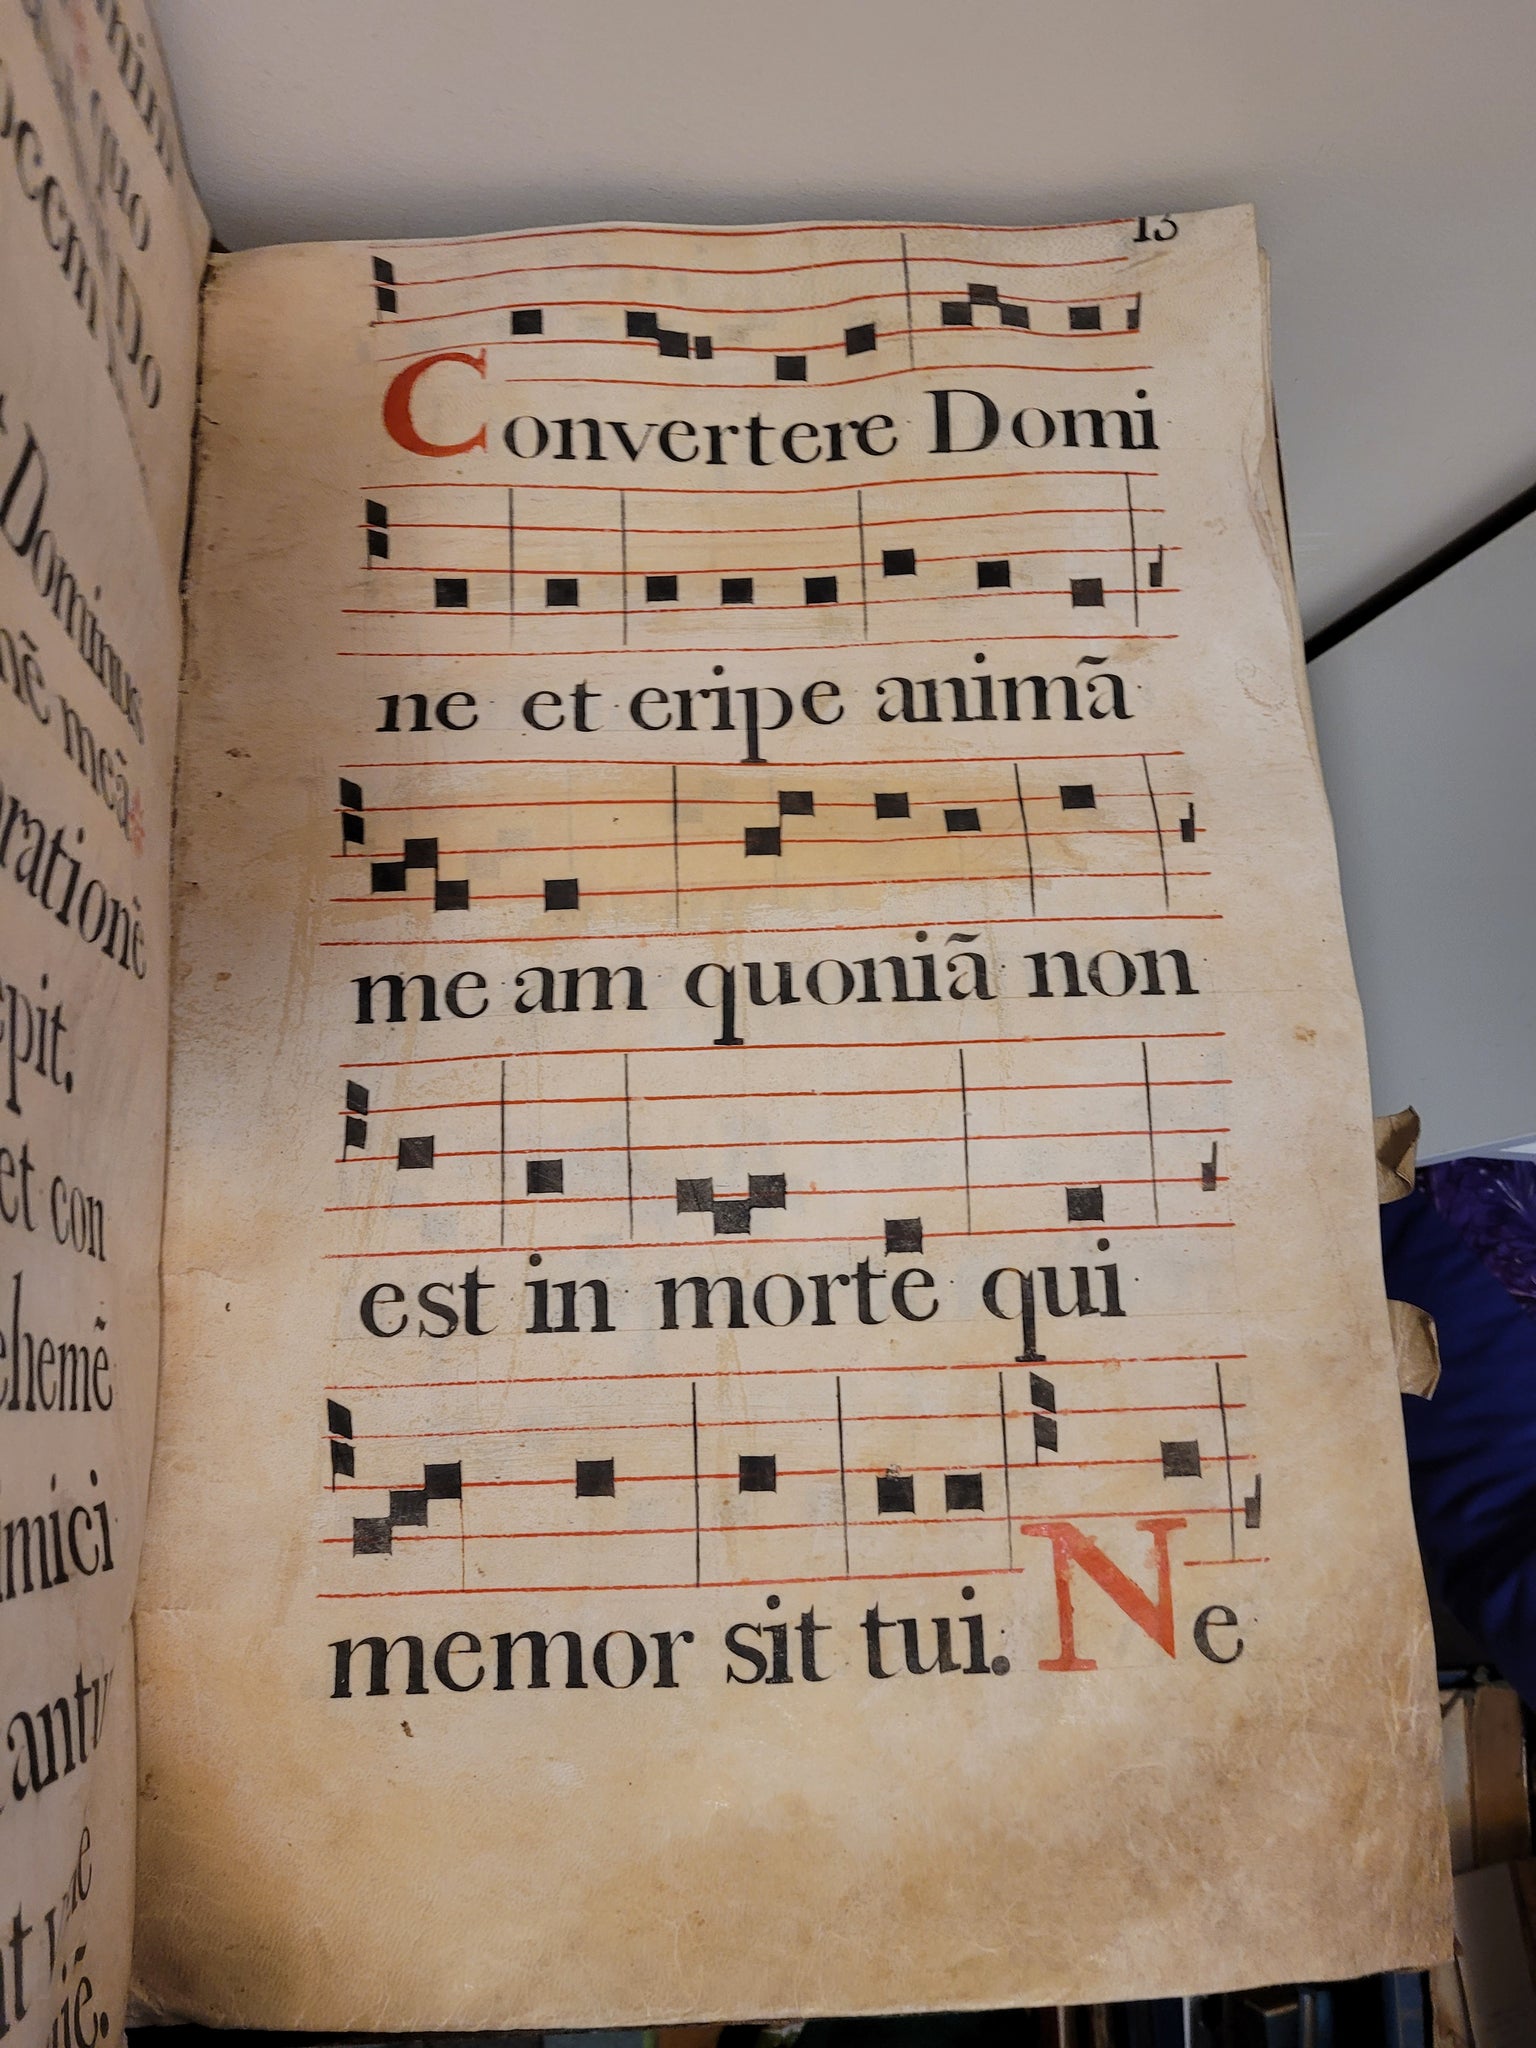 quo
ocem Do
Dominus
nē meā*
orationē
cepit.
et con
ehemē
imici
antv
13
Convertere Domi
ne et eripe animā
me am quoniā non
est in morte qui
memor sit tui. Ne